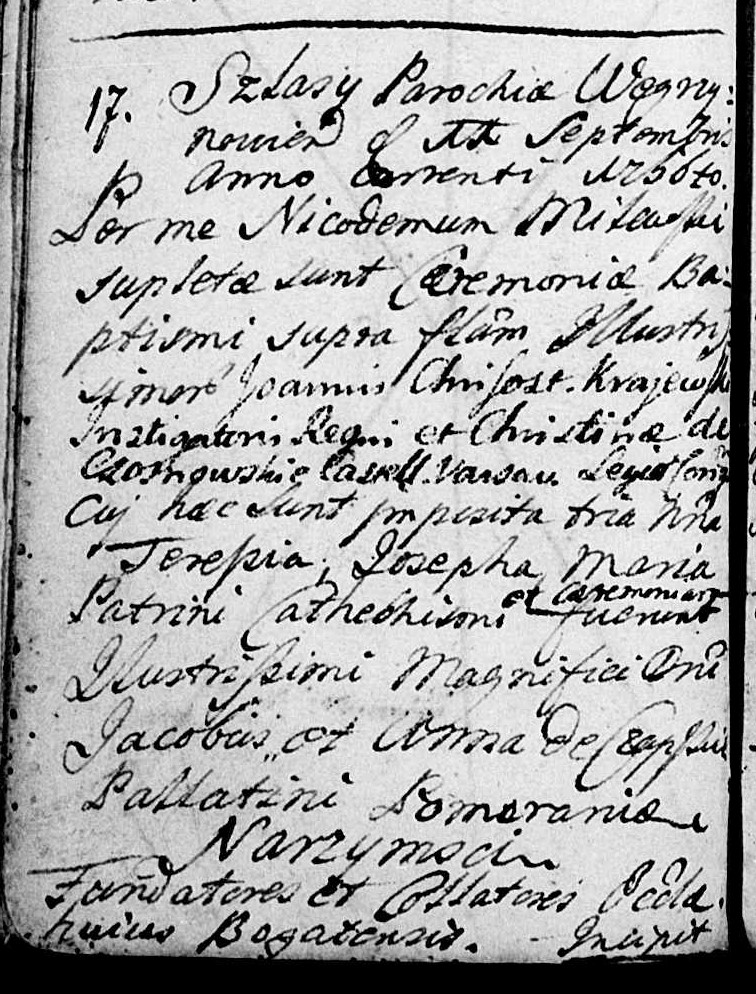 17. Szlasy Parochiæ Węgrzy:
nowien d 11 Septembris
p Anno Currenti 1756to.
Per me Nicodemum Milewski
supletæ sunt Cæremoniæ Ba-
ptismi supra flãm Illustris
simorũ Joannis Chrisost. Krajewski
Instigatoris Regni et Christinæ de
Czosnowskie Castell. Varsav.
Cuj hæc sunt imposita tria Nñã
Teressia, Josepha, Maria
Patrini Cathechismi et Cæremoniarũ fuerunt
Illustrissimi Magnifici Dñi
Jacobus et Anna de Czapskie
Pallatini Pomeraniæ
Narzymsci
Fundatores et Collatores Eccla.
huius Bogatensis. Incipit